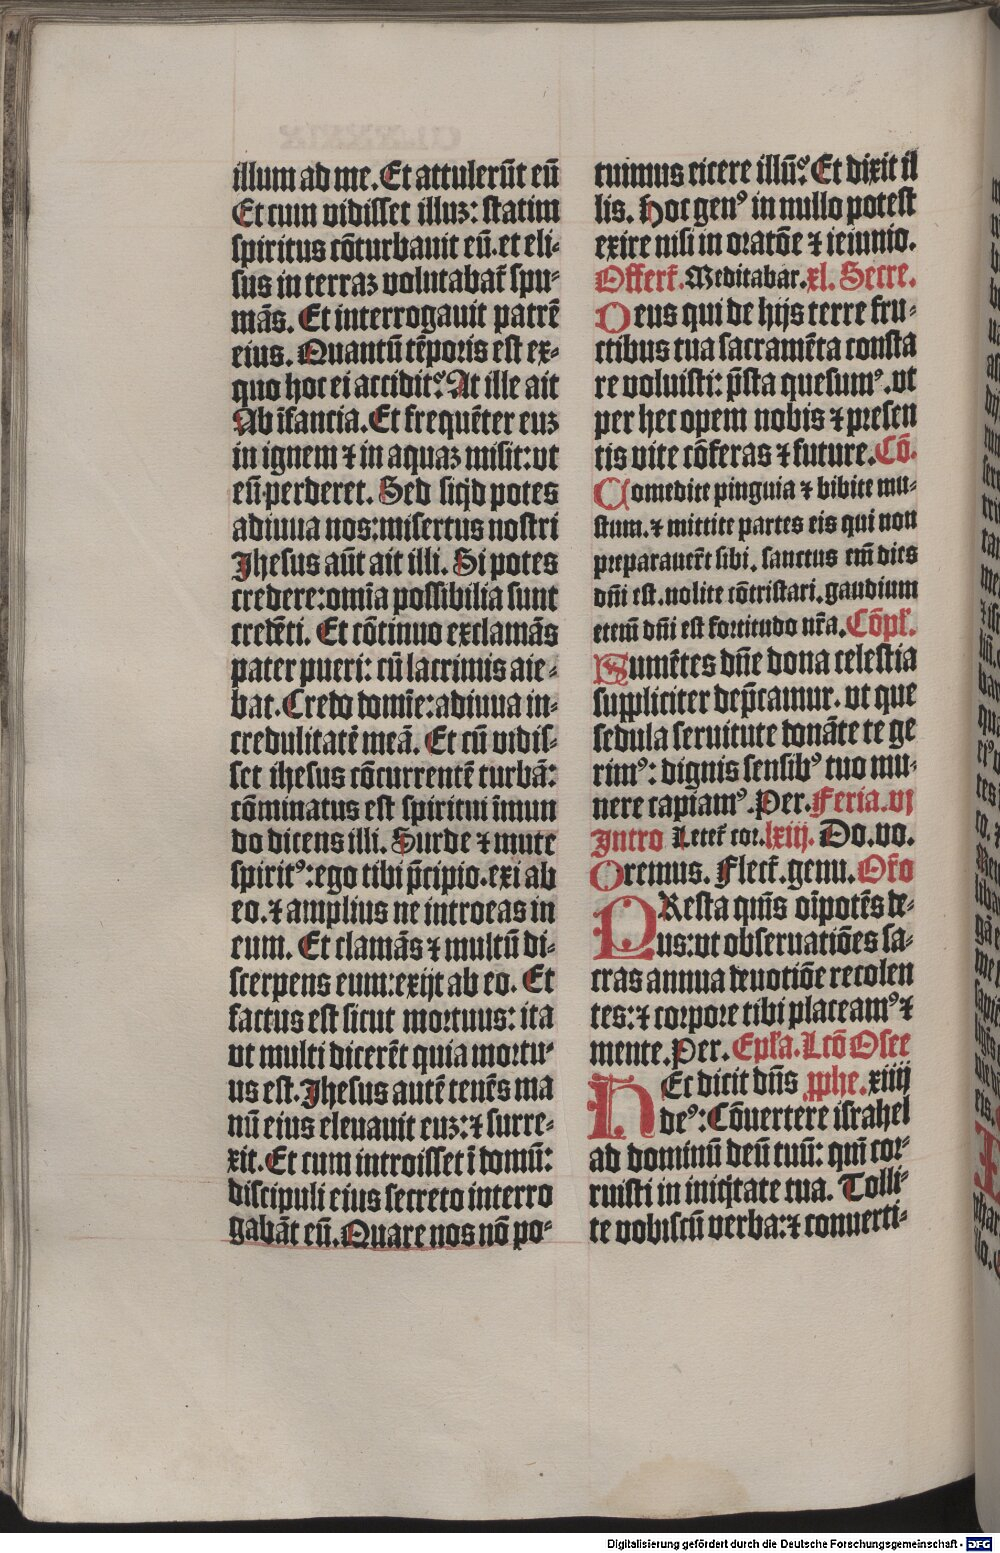 illum ad me. Et attulerūt eū
Et cum vidisset illuꝫ: statim
spiritus cōturbauit eū. et eli-
sus in terraꝫ volutabat̄ spu-
mās. Et interrogauit patrē
eius. Quantū tēporis est ex-
quo hoc ei accidit? At ille ait
Ab īfancia. Et frequēter euꝫ
in ignem ⁊ in aquaꝫ misit: vt
eū perderet. Sed siqͥd potes
adiuua nos: misertus nostri
Jhesus aūt ait illi. Si potes
credere: omīa possibilia sunt
credēti. Et cōtinuo exclamās
pater pueri: cū lacrimis aie-
bat. Credo domīe: adiuua in-
credulitatē meā. Et cū vidis-
set ihesus cōcurrentē turbā:
cōminatus est spiritui īmun
do dicens illi. Surde ⁊ mute
spiritꝰ: ego tibi p̄cipio. exi ab
eo. ⁊ amplius ne introeas in
eum. Et clamās ⁊ multū di-
scerpens eum: exijt ab eo. Et
factus est sicut mortuus: ita
vt multi dicerēt quia mortu-
us est. Jhesus autē tenēs ma
nū eius eleuauit euꝫ: ⁊ surre-
xit. Et cum introisset ī domū:
discipuli eius secreto interro
gabāt eū. Quare nos nō po-
tuimus eicere illū? Et dixit il
lis. Hoc genꝰ in nullo potest
exire nisi in oratōe ⁊ ieiunio.
Offert̄. Meditabar. xl. Secre.
Deus qui de hijs terre fru-
ctibus tua sacramēta consta
re voluisti: p̄sta quesumꝰ. vt
per hec opem nobis ⁊ presen
tis vite cōferas ⁊ future. Cō.
Comedite pinguia ⁊ bibite mu-
stum. ⁊ mittite partes eis qui non
preparauerūt sibi. sanctus em̄ dies
dn̄i est. nolite cōtristari. gaudium
etem̄ dn̄i est fortitudo nr̄a. Cōpl̄.
Sumētes dn̄e dona celestia
suppliciter dep̄camur. vt que
sedula seruitute donāte te ge
rimꝰ: dignis sensibꝰ tuo mu-
nere capiamꝰ. Per. Feria. vj
Intro Letet̄ cor. lxiij. Do. vo.
Oremus. Flect̄. genu. Or̄o
PResta qm̄s oīpotēs de-
us: vt obseruatiōes sa-
cras annua deuotiōe recolen
tes: ⁊ corpore tibi placeamꝰ ⁊
mente. Per. Epl̄a. Lcō Osee
HEc dicit dn̄s ꝓphe. xiiij
deꝰ: Cōuertere israhel
ad dominū deū tuū: qm̄ cor-
ruisti in iniqͥtate tua. Tolli-
te vobiscū verba: ⁊ conuerti-
Digitalisierung gefördert durch die Deutsche Forschungsgemeinschaft - DFG